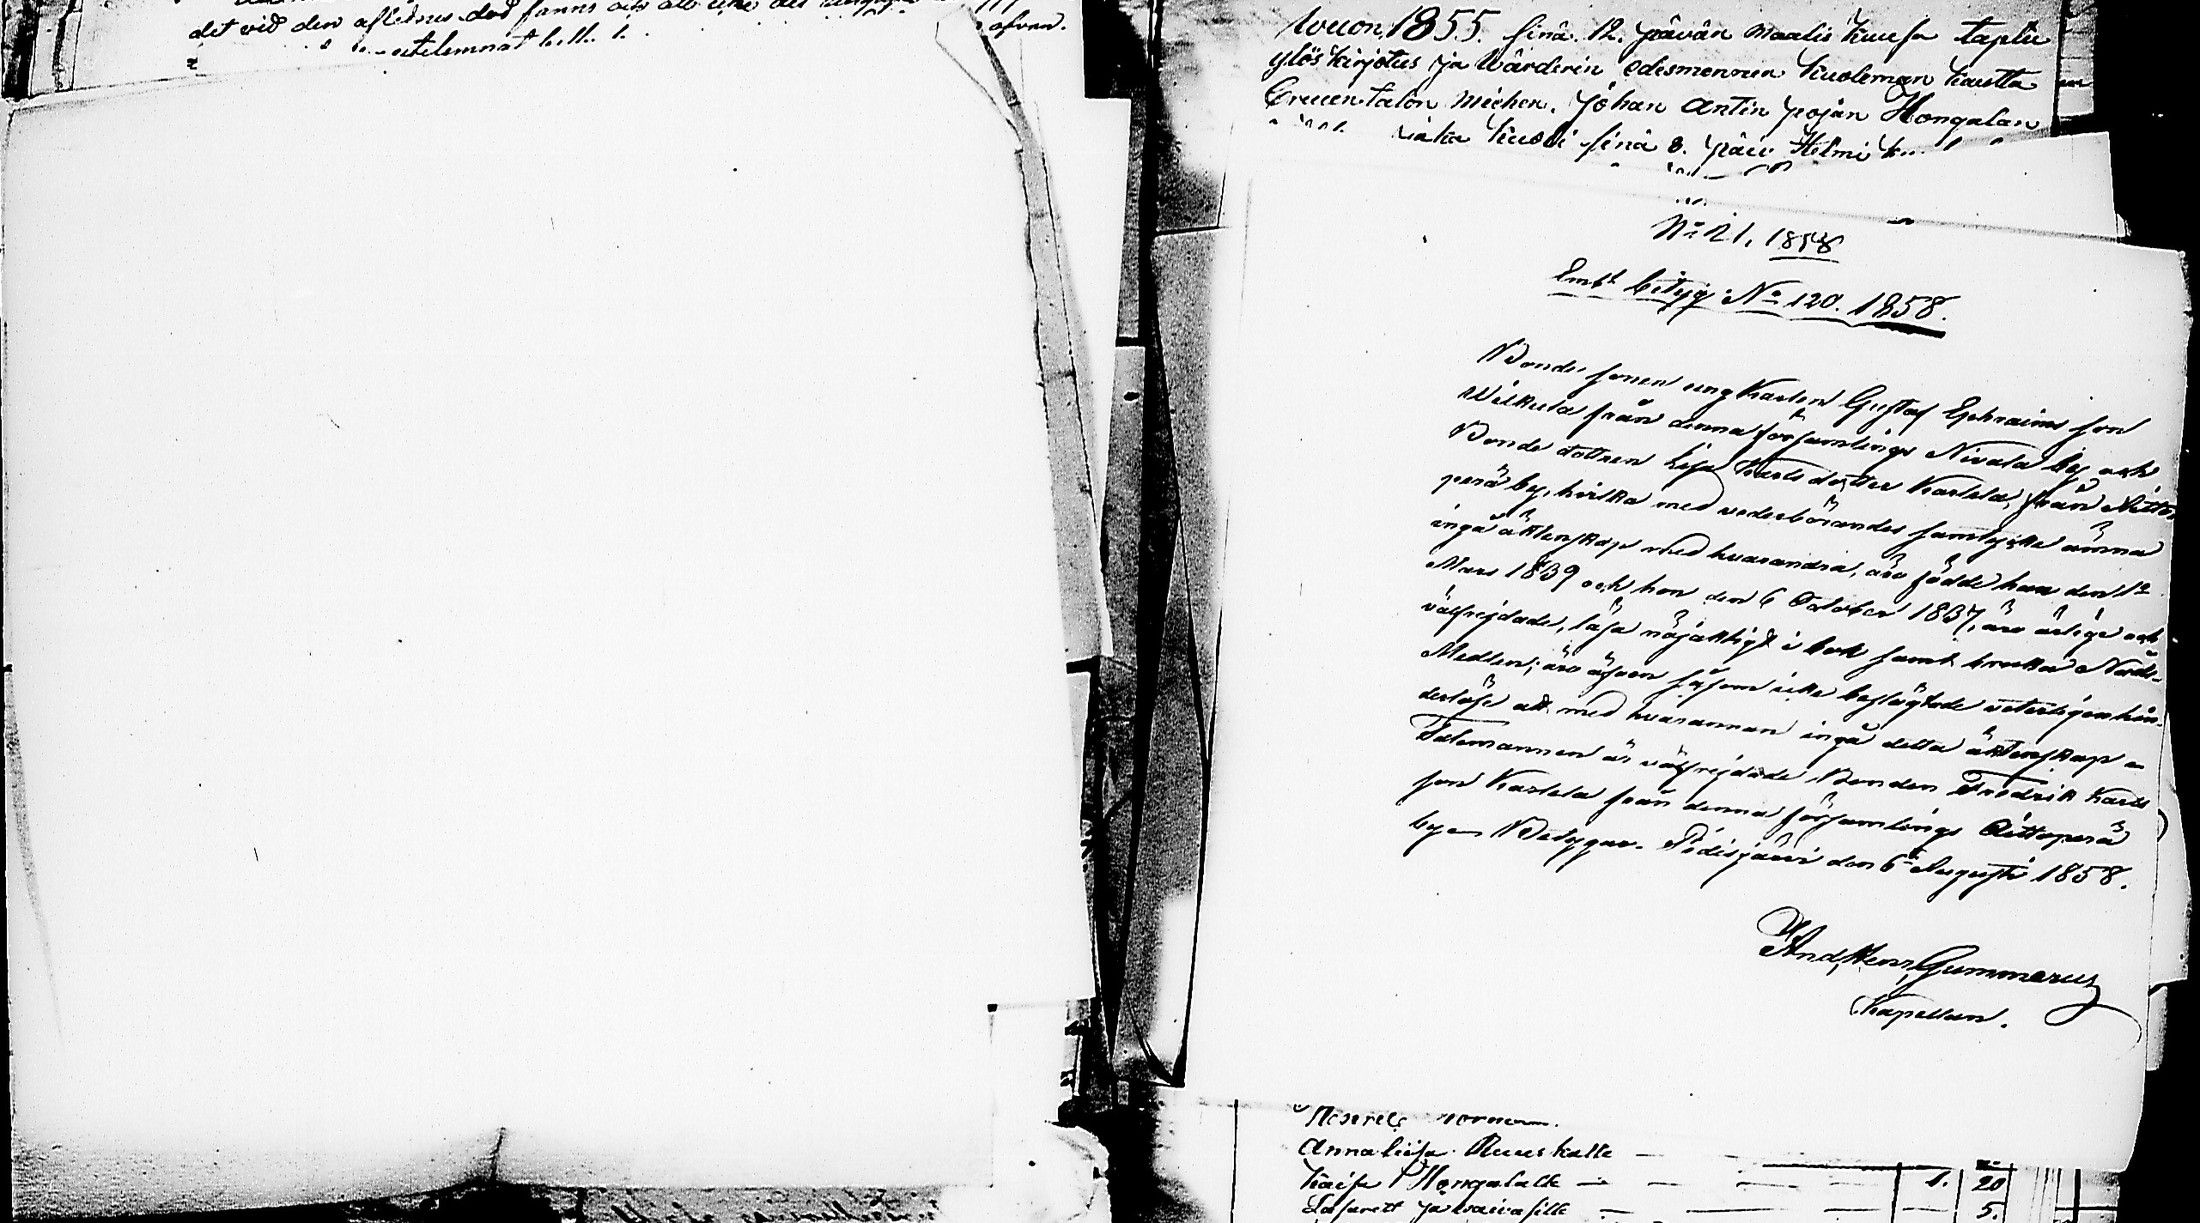 det vid den aflednes död fanns och att icke det
afvan.
Wuon 1855. sinä. 12. päivän maalis kuusa taptu
ylös kirjotus ja Wärderin edesmennen kuoleman kautta
talon miehen. Johan Antin pojan Hongalan
kuoli sinä 8. päiv Helmi
No 21. 1858
Embt betyg No 120. 1858.
Bonde sonen ungkarlen Gustaf Ephraims son
Wilkula från denna församlings Nivala by och
Bonde dottren Lisa Karls dotter Karlela, från Aitto
perä by, hvilka med vederbörandes samtycke ämna
ingå äktenskap med hvarandra, äro födde han den 12
Mars 1839 och hon den 6 October 1837, äro ärlige och
välfrejdade, läsa nöjaktigt i bok samt bruka Nåde-
Medlen; äro äfven såsom icke beslägtade veterligen hin-
derlöse att med hvarannan ingå detta äktenskap
Talemannen är välfrejdade Bonden Fredrik Karls
son Karlela från denna församlings Aittoperä
by Betygar. Pidisjärvi den 6te Augusti 1858.
And. Henr. Gummerus
Kapellan.
Anna Liisa Ruuskalle
Kaisa Hongalalle 1. 20
Lasarett ja waiwasille 5.